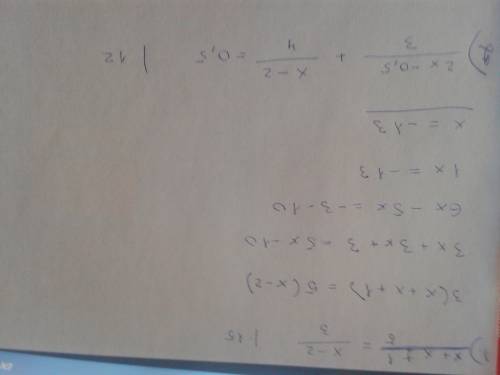 1) (x+x+1)/5 = (x-2)/3 | 15
3(x+x+1) = 5(x-2)
3x+3x+3 = 5x-10
6x-5x = -3-10
1x = -13
x = -13
(2x-0,5)/3 + (x-2)/4 = 0,5 | 12